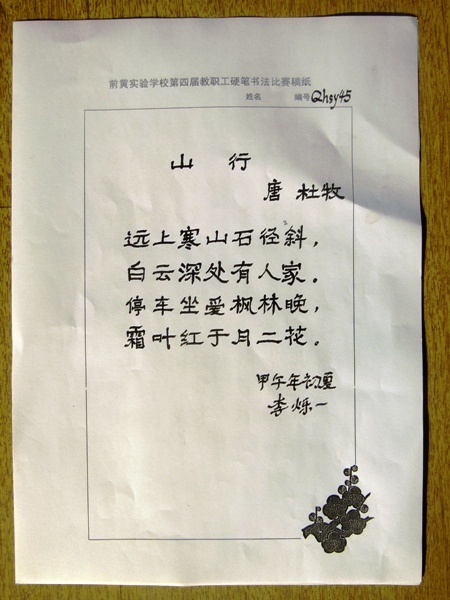 前黄实验学校第四届教职工硬笔书法比赛稿纸
姓名 编号Qhsy45
山 行
唐 杜牧
远上寒山石径斜，
白云深处有人家。
停车坐爱枫林晚，
霜叶红于月二花。
甲午年初夏
李烁一